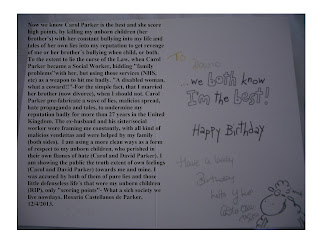 Now we know Carol Parker is the best and she score
high points, by killing my unborn children (her
brother's) with her constant bullying into my life and
tales of her own lies into my reputation to get revenge
of me or her brother's bullying when child, or both.
To the extent to lie the curse of the Laws, when Carol
Parker became a Social Worker, hidding "family
problems" with her, but using those services (NHS,
etc) as a weapon to hit me badly. "A disabled woman,
what a coward!!"-For the simple fact, that I married
her brother (now divorce), when I should not. Carol
Parker pre-fabricate a wave of lies, malicius spread,
hate propaganda and tales, to undermine my
reputation badly for more than 27 years in the United
Kingdom. The ex-husband and his sister/social
worker were framing me constantly, with all kind of
malicius vendettas and were helped by my family
(both sides). I am using a more clean ways as a form
of respect to my unborn children, who perished in
their own flames of hate (Carol and David Parker). I
am showing the public the truth extent of own feelings
(Carol and David Parker) towards me and mine. I
was accused by both of them of pure lies and those
little defenseless life's that were my unborn children
(RIP), only "scoring points"- What a sick society we
live nowdays. Rosario Castellanos de Parker,
12/4/2013.
To
...we both know
I'm the best!
Happy Birthday
Have a lovely
Birthday